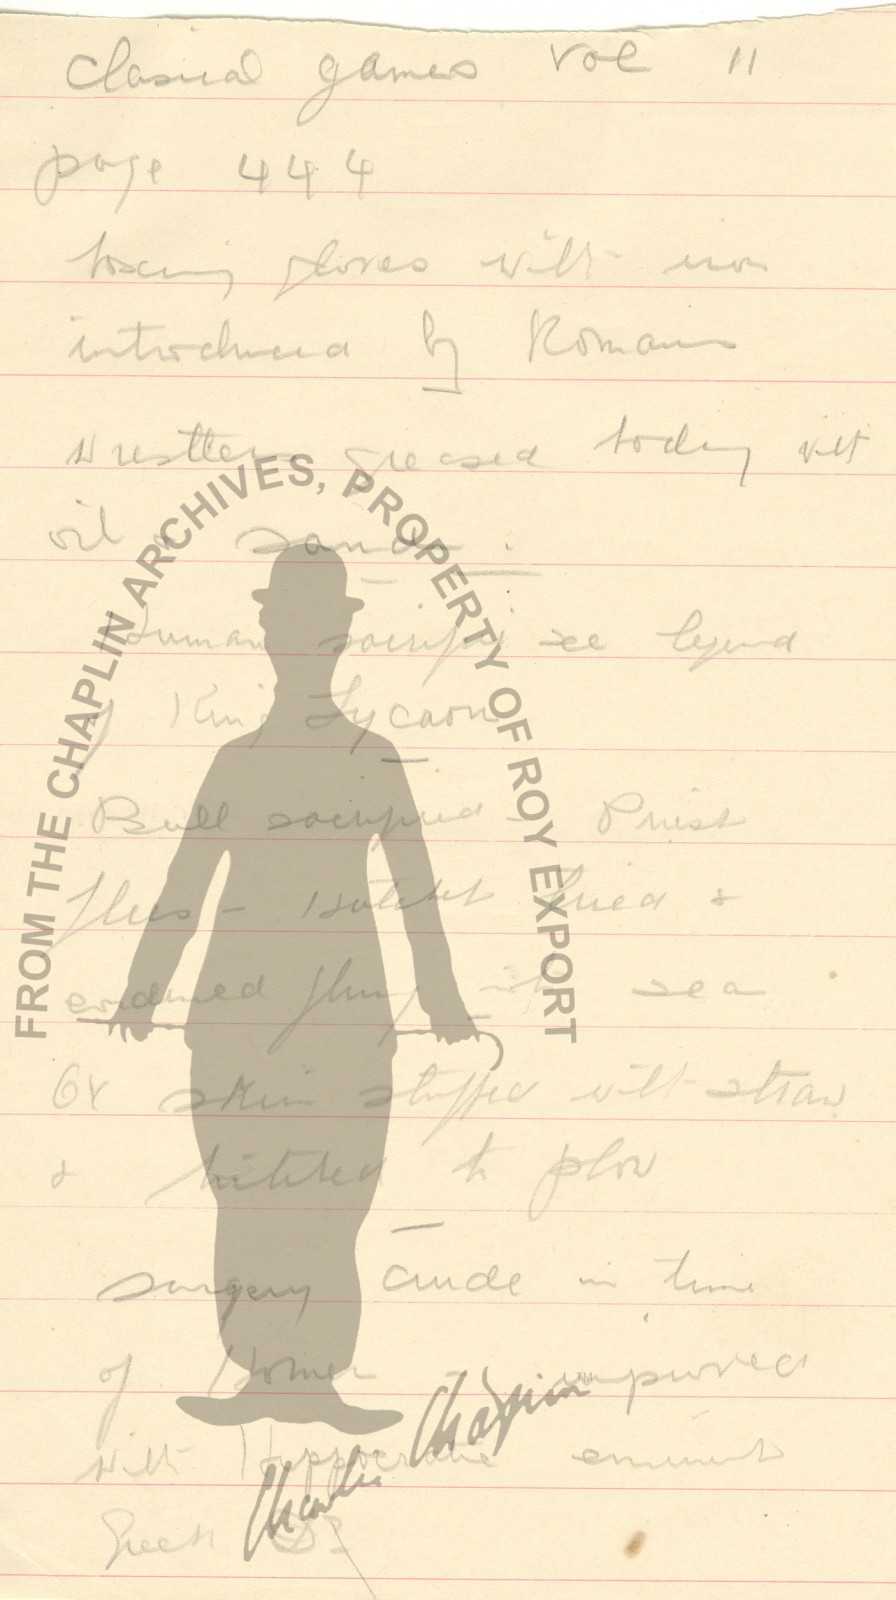 Clasical games vol 11
page 444
boxing gloves with iron
introduced by Romans
Wrestlers greased today with
oil & sand.
Human sacrifi see legend
of King Lycaon
Bull sacrificed - Priest
flees - Hatchet tried &
condemed flung into sea
Ox skin stuffed with straw
& hitched to plow
surgery crude in time
of Homer improved
with Hyppocrates eminent
Greek
FROM THE CHAPLIN ARCHIVES, PROPERTY OF ROY EXPORT
Charlie Chaplin